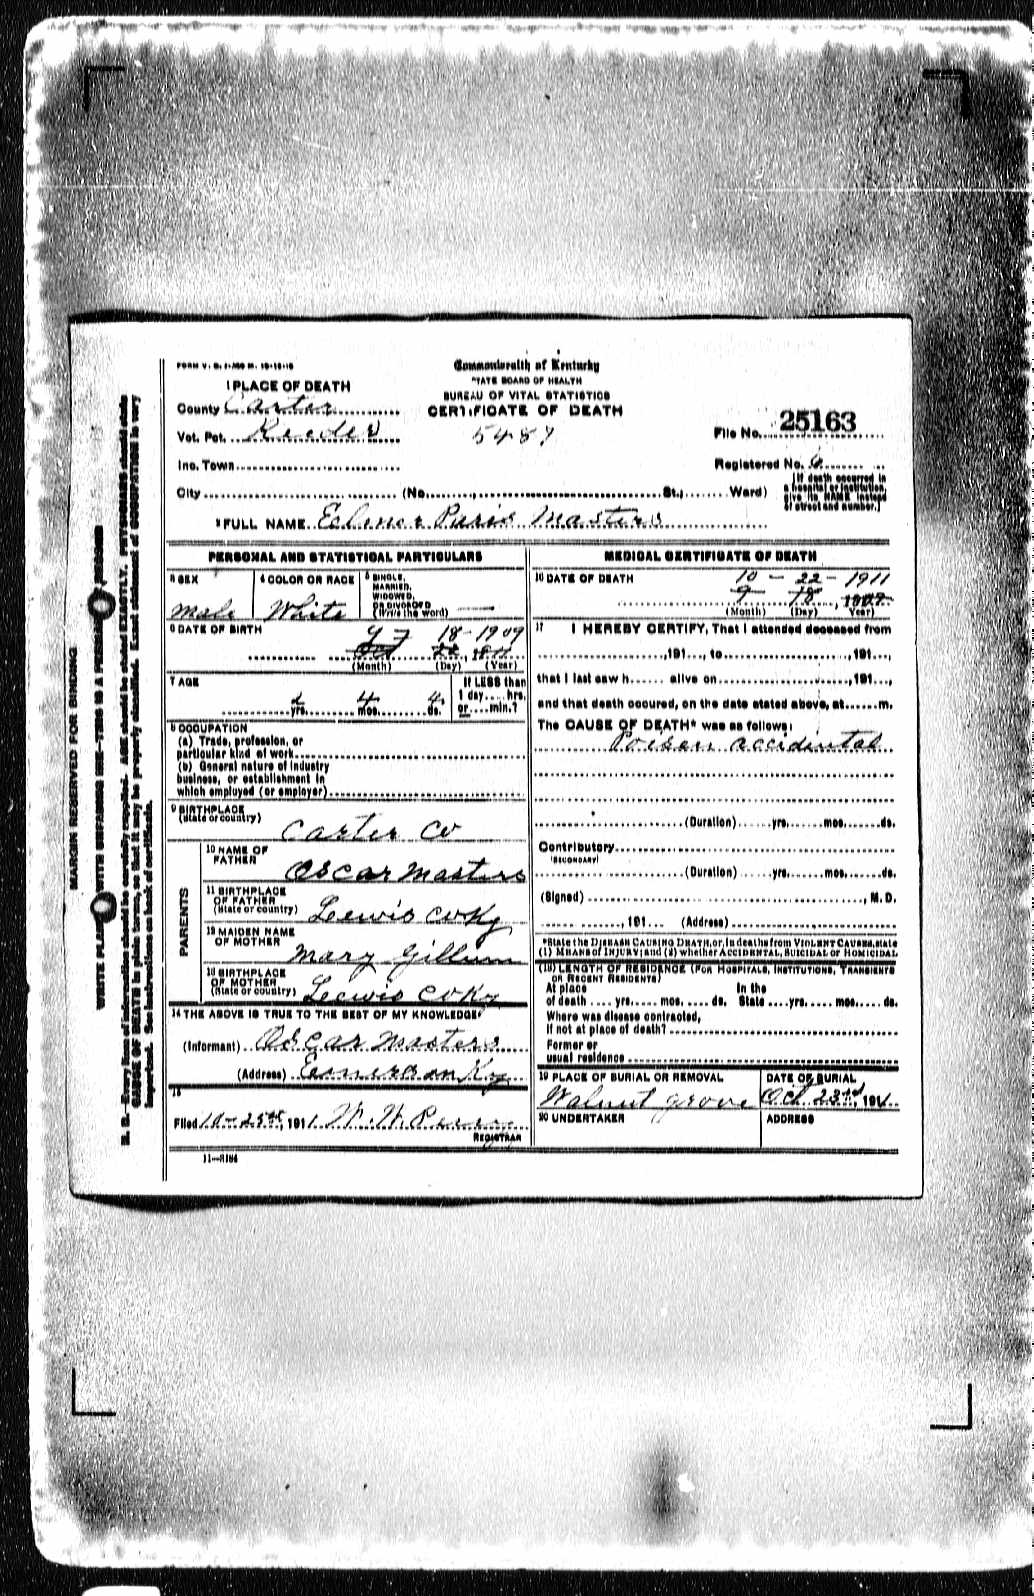 FORM V. S.
Commonwealth of Kentucky
STATE BOARD OF HEALTH
BUREAU OF VITAL STATISTICS
CERTIFICATE OF DEATH
5487
1 PLACE OF DEATH
County Carter
Vot. Pct. Reeder
Inc. Town
City (No. St.; Ward)
File No. 25163
Registered No. 6
[If death occurred in a hospital or institution, give its NAME instead of street and number.]
2 FULL NAME Masters
PERSONAL AND STATISTICAL PARTICULARS
3 SEX
Male
4 COLOR OR RACE
White
5 SINGLE, MARRIED, WIDOWED, OR DIVORCED (Write the word)
6 DATE OF BIRTH
18-1909
(Month) (Day) (Year)
7 AGE
2 yrs. 4 mos. 4 ds.
If LESS than 1 day....hrs. or....min.?
8 OCCUPATION
(a) Trade, profession, or
particular kind of work
(b) General nature of industry
business, or establishment in
which employed (or employer)
9 BIRTHPLACE
(State or country)
Carter Co
PARENTS
10 NAME OF FATHER
Oscar Masters
11 BIRTHPLACE OF FATHER
(State or country)
Lewis Co Ky
12 MAIDEN NAME OF MOTHER
Mary Gillum
13 BIRTHPLACE OF MOTHER
(State or country)
Lewis Co Ky
14 THE ABOVE IS TRUE TO THE BEST OF MY KNOWLEDGE
(Informant) Oscar Masters
(Address) Ky
15
Filed 10-25th, 1911 W. W.
REGISTRAR
11—3184
MEDICAL CERTIFICATE OF DEATH
16 DATE OF DEATH
10 - 22 - 1911
9 18 1909
(Month) (Day) (Year)
17 I HEREBY CERTIFY, That I attended deceased from
,191..., to ,191...,
that I last saw h...... alive on ,191...,
and that death occured, on the date stated above, at......m.
The CAUSE OF DEATH* was as follows:
Poison accidental
(Duration)......yrs.......mos.......ds.
Contributory
(SECONDARY)
(Duration)......yrs.......mos.......ds.
(Signed) , M. D.
,191... (Address)
*State the DISEASE CAUSING DEATH, or, in deaths from VIOLENT CAUSES, state
(1) MEANS of INJURY; and (2) whether ACCIDENTAL, SUICIDAL or HOMICIDAL
(18) LENGTH OF RESIDENCE (FOR HOSPITALS, INSTITUTIONS, TRANSIENTS
OR RECENT RESIDENTS)
At place In the
of death .... yrs. .... mos. .... ds. State .... yrs. .... mos. .... ds.
Where was disease contracted,
If not at place of death?
Former or
usual residence
19 PLACE OF BURIAL OR REMOVAL
Walnut Grove
DATE OF BURIAL
Oct 23rd, 1911
20 UNDERTAKER
ADDRESS
MARGIN RESERVED FOR BINDING
WRITE PLAINLY WITH UNFADING INK—THIS IS A PERMANENT RECORD
N. B.—Every item of information should be carefully supplied. AGE should be stated EXACTLY. PHYSICIANS should state
CAUSE OF DEATH in plain terms, so that it may be properly classified. Exact statement of OCCUPATION is very
important. See instructions on back of certificate.